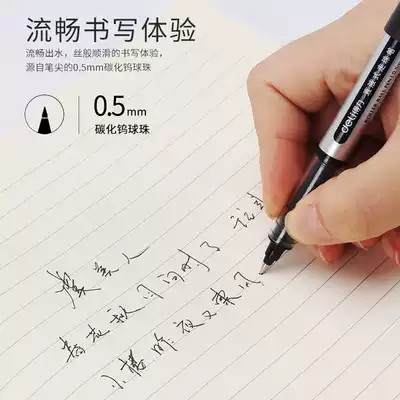 流畅书写体验
流畅出水，丝般顺滑的书写体验，
源自笔尖的0.5mm碳化钨球珠
0.5mm
碳化钨球珠
deli得力
虞美人
春花秋月何时了 往
小楼昨夜又东风